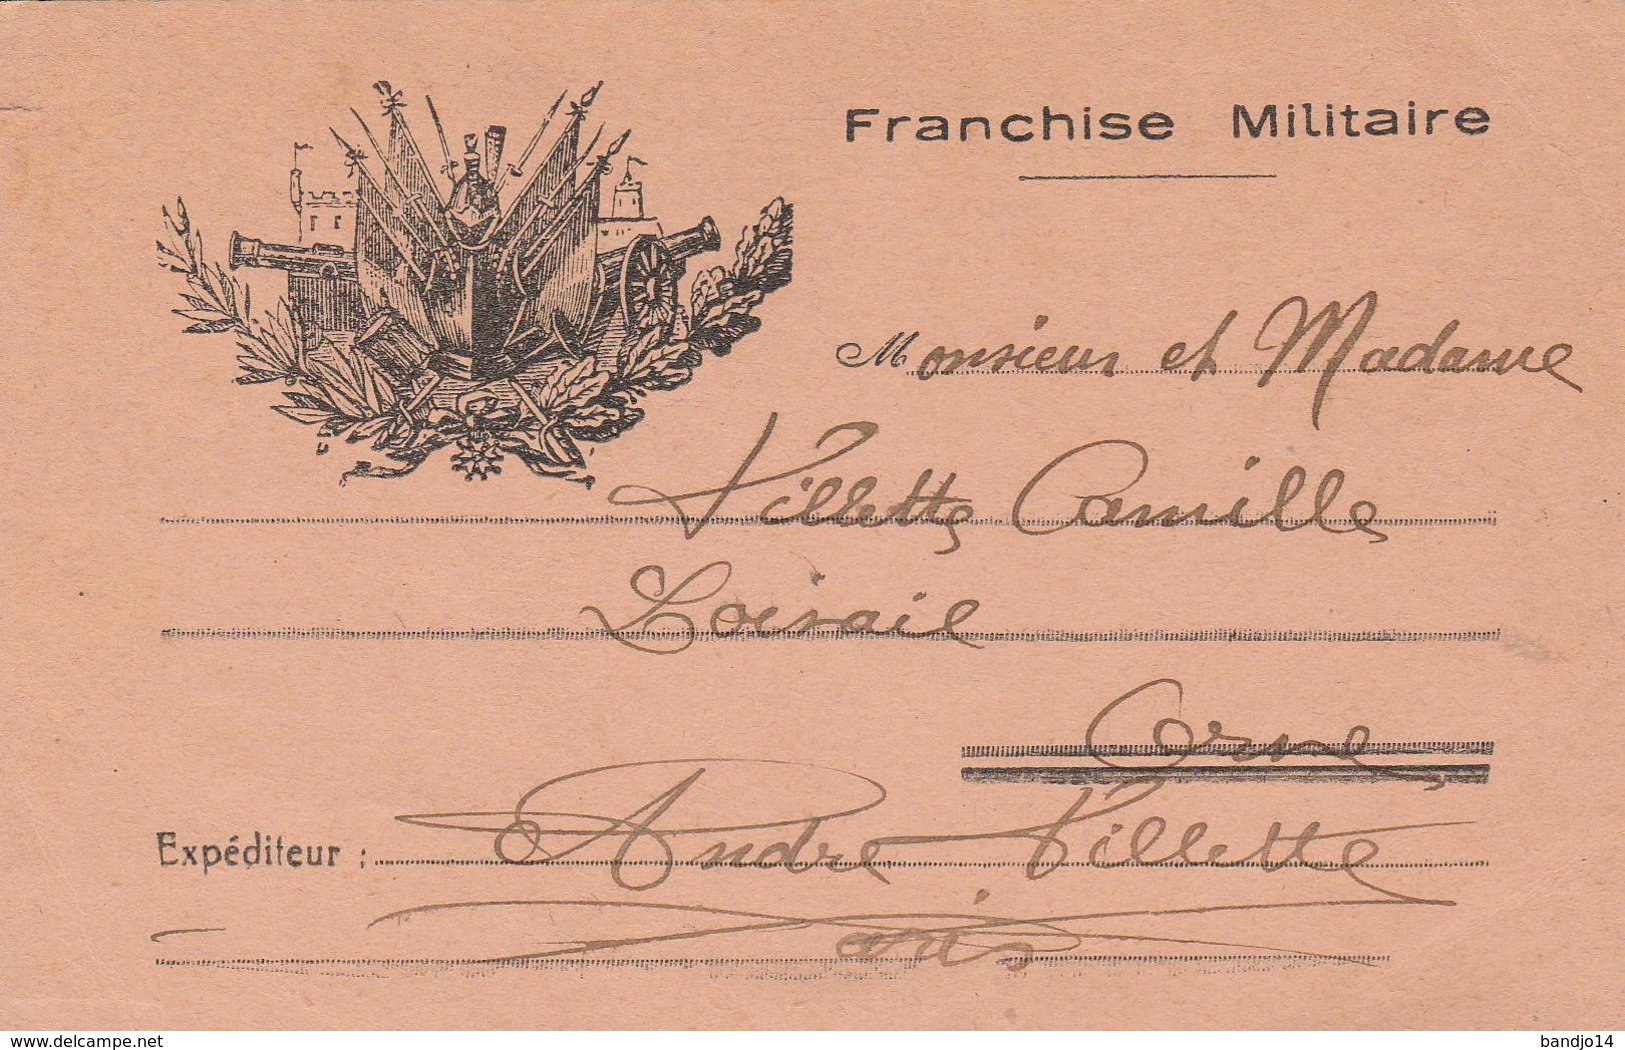 Franchise Militaire
Monsieur et Madame
Villette Camille
Loisail
Orne
Expéditeur : André Villette
Paris
www.delcampe.net
bandjo14